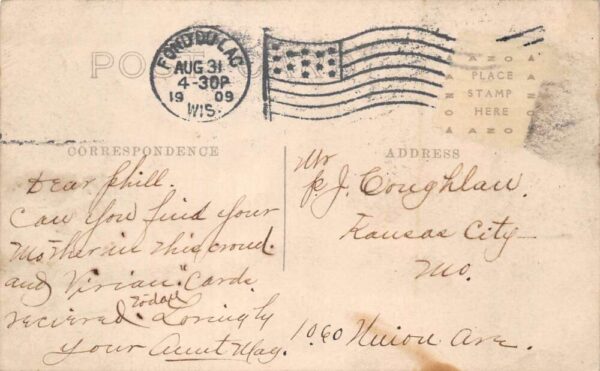 POST
FOND DU LAC
AUG 31
4-30P
1909
WIS.
AZO
PLACE
STAMP
HERE
AZO
CORRESPONDENCE
ADDRESS
Dear Phill.
Can you find your
Mother in this croud.
and Vivian" Cards
recieved today. Lovingly
your Aunt May.
Mr
P J. Coughlan.
Kansas City
Mo.
1060 Union Ave.